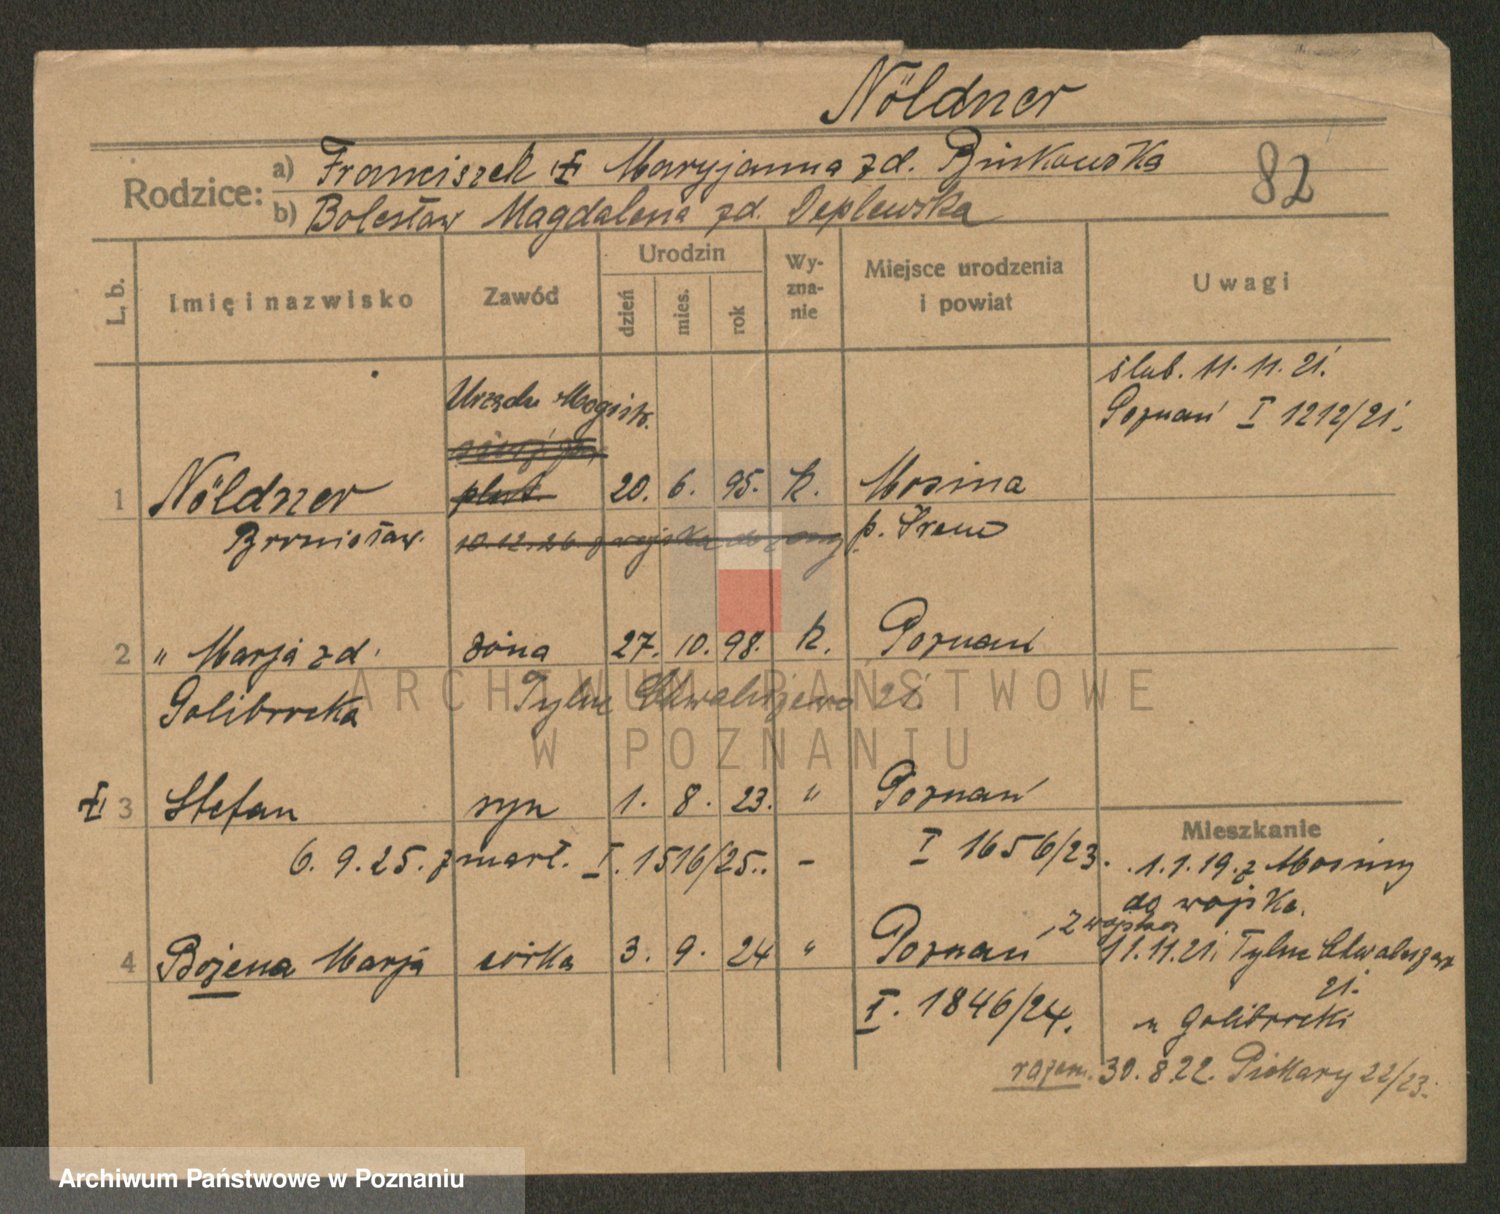 Nöldner
82
Rodzice:
a) Franciszek Maryjanna zd. Binkowska
b) Bolesław Magdalena zd. Deplewska
L. b.
Imię i nazwisko
Zawód
Urodzin
dzień
mies.
rok
Wy-
zna-
nie
Miejsce urodzenia
i powiat
Uwagi
ślub. 11. 11. 21.
Poznań I 1212/21.
Urzędn. Magistr.
plut.
1 Nöldner 20. 6. 95. k. Mosina
Bronisław. 10.12.26. z wojska do żony p. Śrem
2 " Marja zd. żona 27. 10. 98. k. Poznań
Golibrocka Tylne Chwaliszewo 21.
3 Stefan syn 1. 8. 23. " Poznań
6. 9. 25. zmarł. I. 1516/25. - I 1656/23.
Mieszkanie
1.1.19. z Mosiny
do wojska.
z wojska
4 Bożena Marja córka 3. 9. 24 " Poznań
I. 1846/24.
11.11.21. Tylne Chwaliszewo
21.
u Golibrocki
razem. 30. 8. 22. Piekary 22/23.
ARCHIWUM PAŃSTWOWE
W POZNANIU
Archiwum Państwowe w Poznaniu